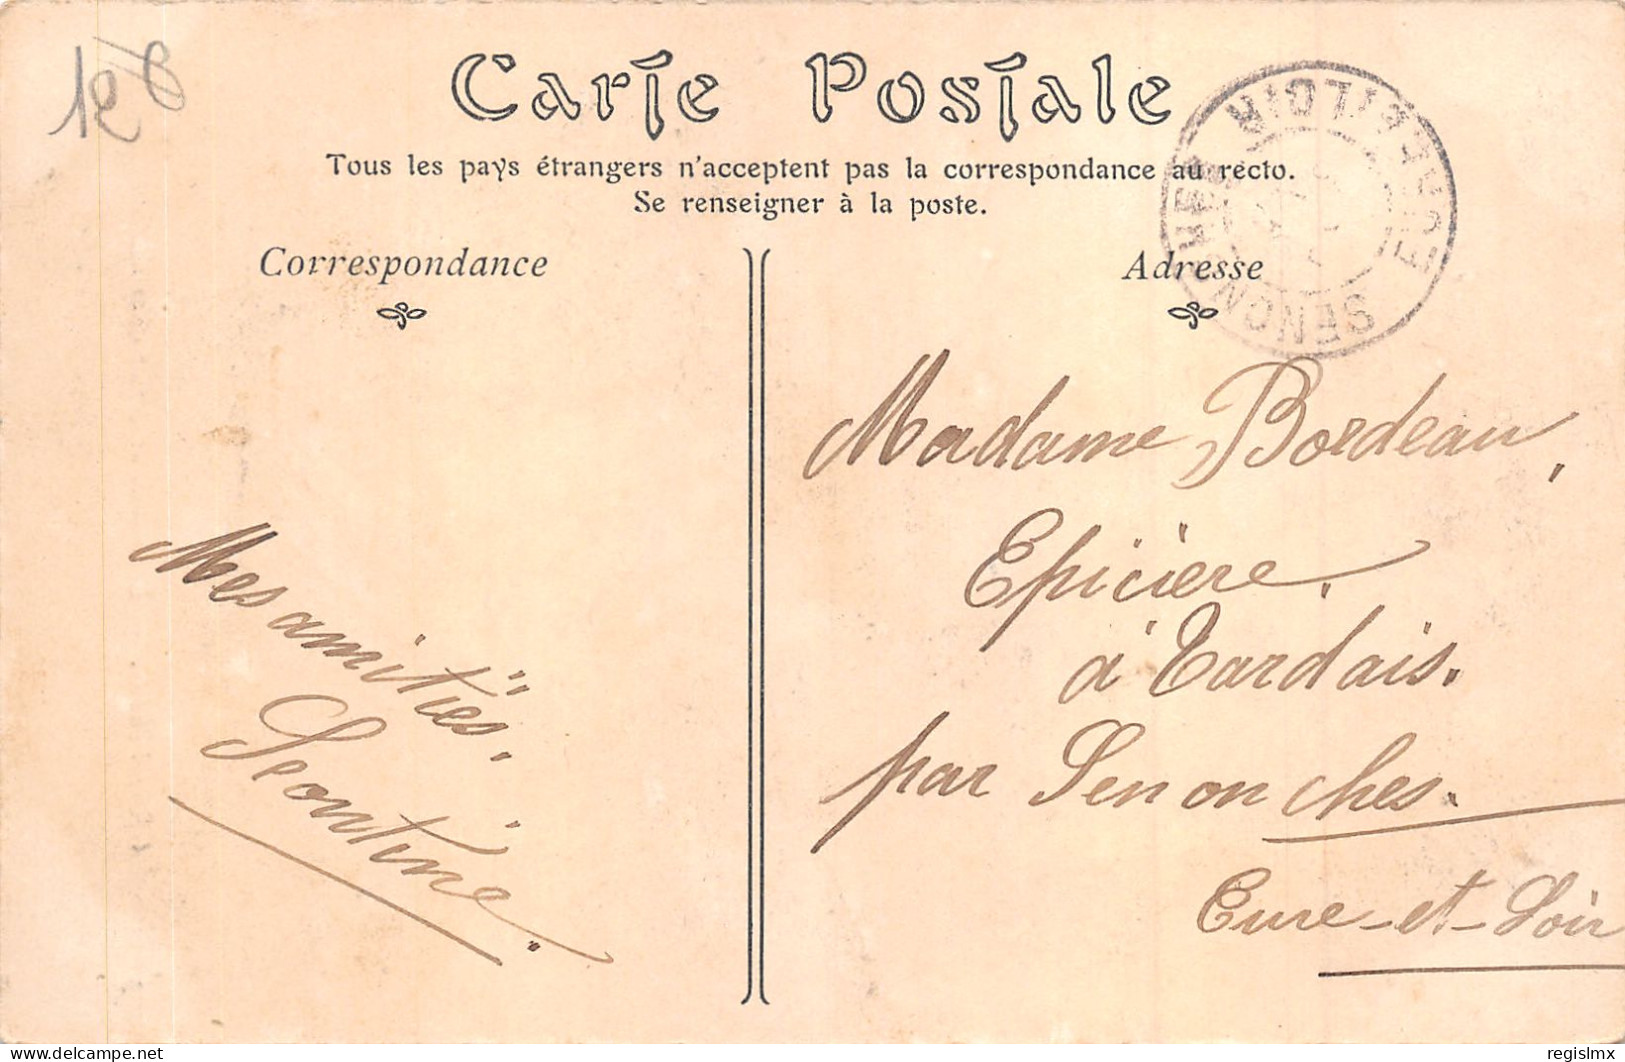 Carte Postale
Tous les pays étrangers n'acceptent pas la correspondance au recto.
Se renseigner à la poste.
Correspondance
Adresse
SENONCHES
EURE-ET-LOIR
Mes amitiés.
Léontine.
Madame Bordeau,
Epicière,
à Tardais.
par Senonches.
Eure-et-Loir
delcampe.net
regislmx